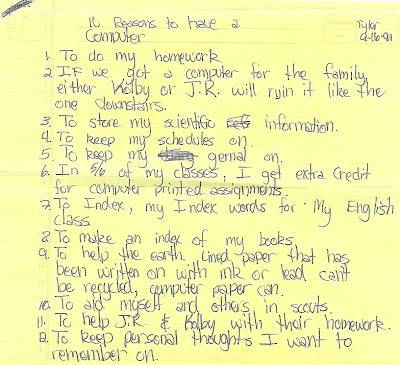 Reasons to have a
Computer
Tyler
9-16-91
1. To do my homework
2. If we got a computer for the family,
either Kolby or J.R. will ruin it like the
one downstairs.
3. To store my scientific information.
4. To keep my schedules on.
5. To keep my gernal on.
6. In 5/6 of my classes, I get extra credit
for computer printed assignments.
7. To Index, my Index words for My English
class
8. To make an index of my books.
9. To help the earth. Lined paper that has
been written on with ink or lead can't
be recycled, computer paper can.
10. To aid myself and others in scouts.
11. To help J.R. & Kolby with their homework.
12. To keep personal thoughts I want to
remember on.